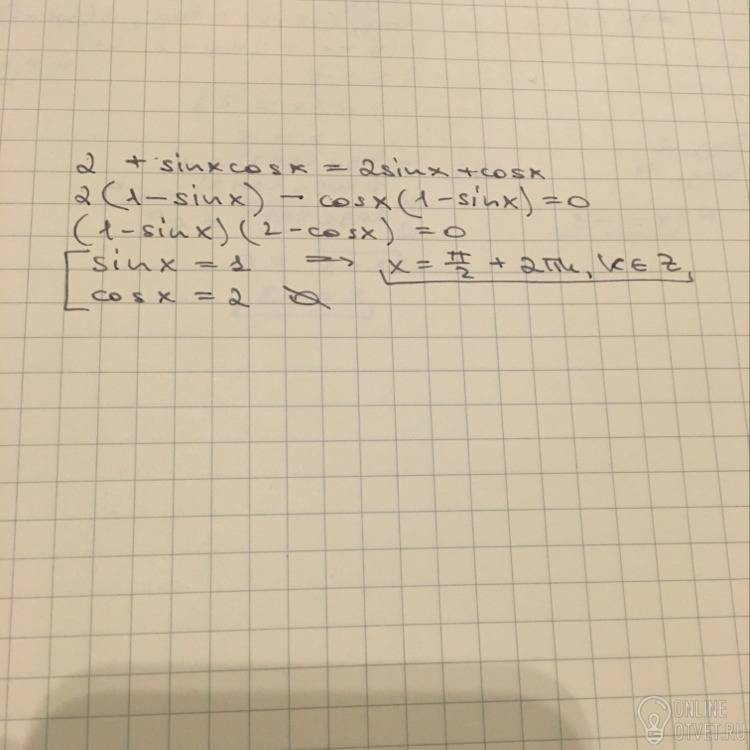 2 + sinxcosx = 2sinx + cosx
2(1 - sinx) - cosx(1 - sinx) = 0
(1 - sinx)(2 - cosx) = 0
sinx = 1 => x = π/2 + 2πk, k ∈ Z,
cosx = 2 ∅
ONLINE
OTVET.RU